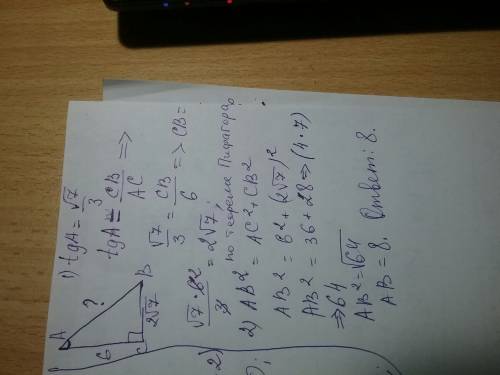 1) tgA = √7/3
tgA = CB/AC ⇒
√7/3 = CB/6 ⇒ CB =
√7·6²/3 = 2√7;
по теореме Пифагора:
2) AB² = AC² + CB²
AB² = 6² + (2√7)²
AB² = 36 + 28 ⇒ (4·7)
⇒ 64
AB² = √64
AB = 8. Ответ: 8.
A
?
6
C
2√7
B
2)